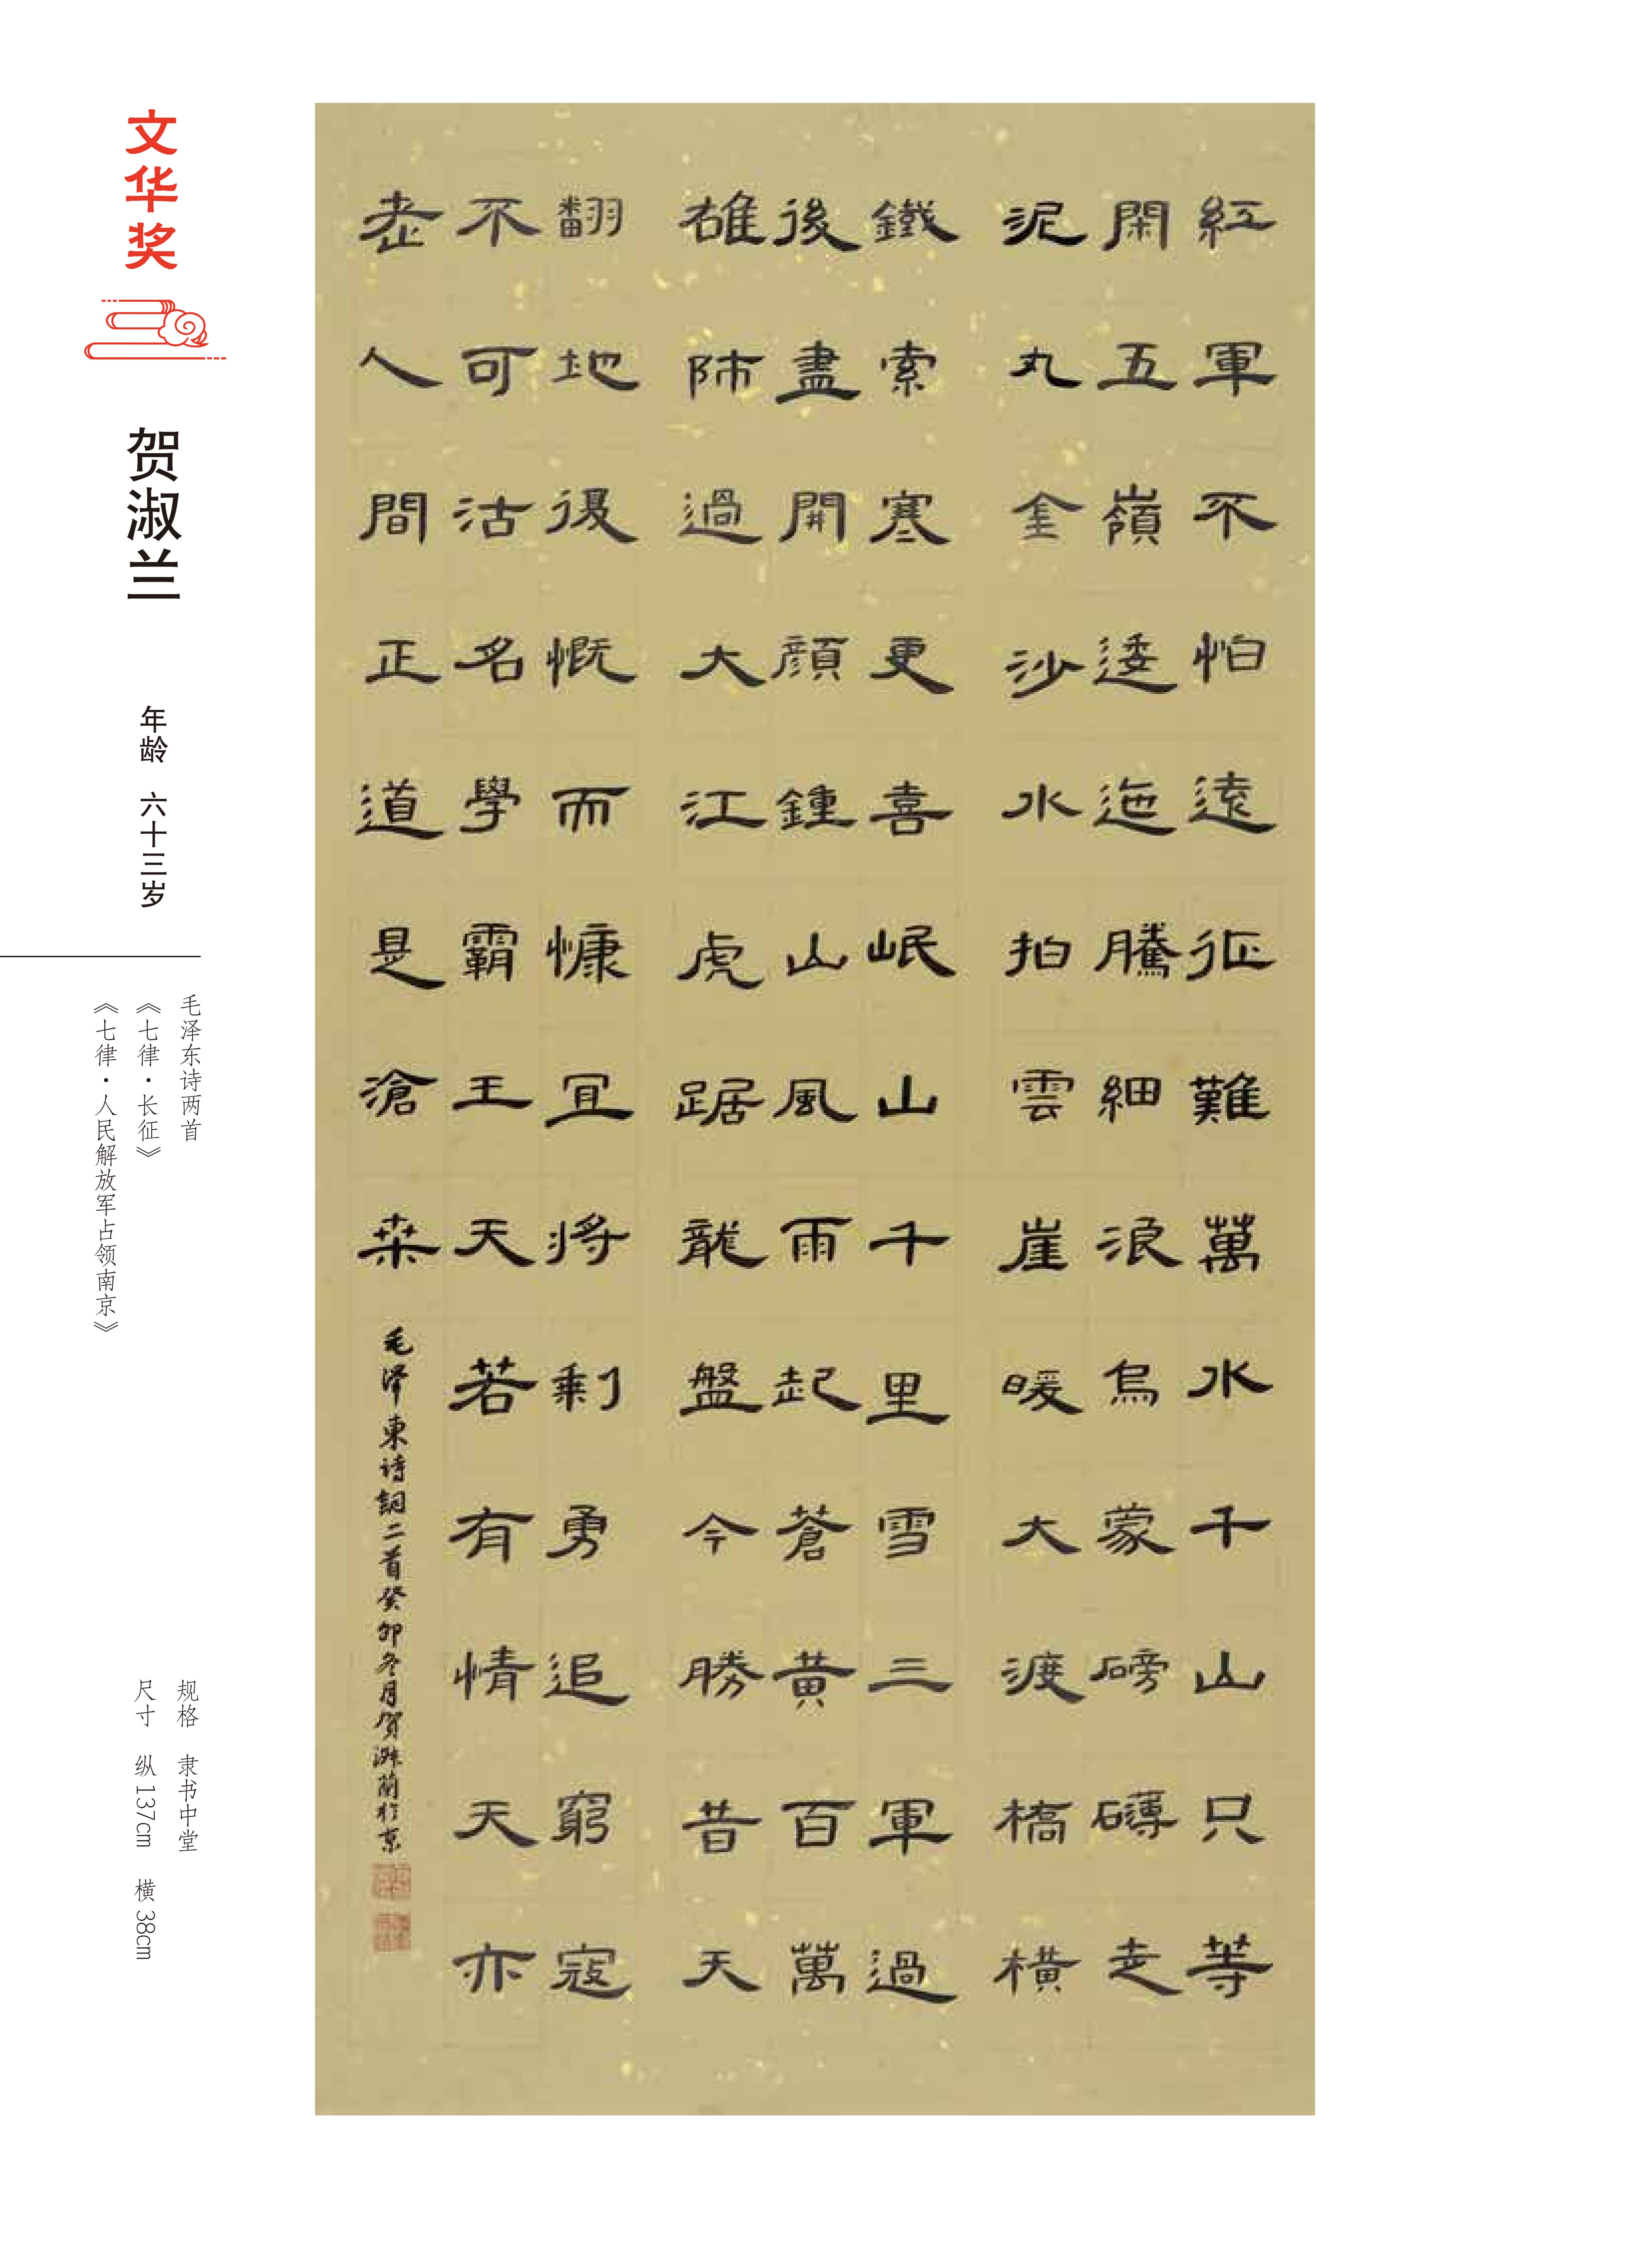 文华奖
贺淑兰
年龄 六十三岁
毛泽东诗两首
《七律·长征》
《七律·人民解放军占领南京》
规格 隶书中堂
尺寸 纵137cm 横38cm
紅軍不怕遠征難萬水千山只等
閑五嶺逶迤騰細浪烏蒙磅礴走
泥丸金沙水拍雲崖暖大渡橋橫
鐵索寒更喜岷山千里雪三軍過
後盡開顔鍾山風雨起蒼黄百萬
雄師過大江虎踞龍盤今勝昔天
翻地復慨而慷宜將剩勇追窮寇
不可沽名學霸王天若有情天亦
老人間正道是滄桑
毛澤東诗詞二首癸卯冬月賀淑蘭於京